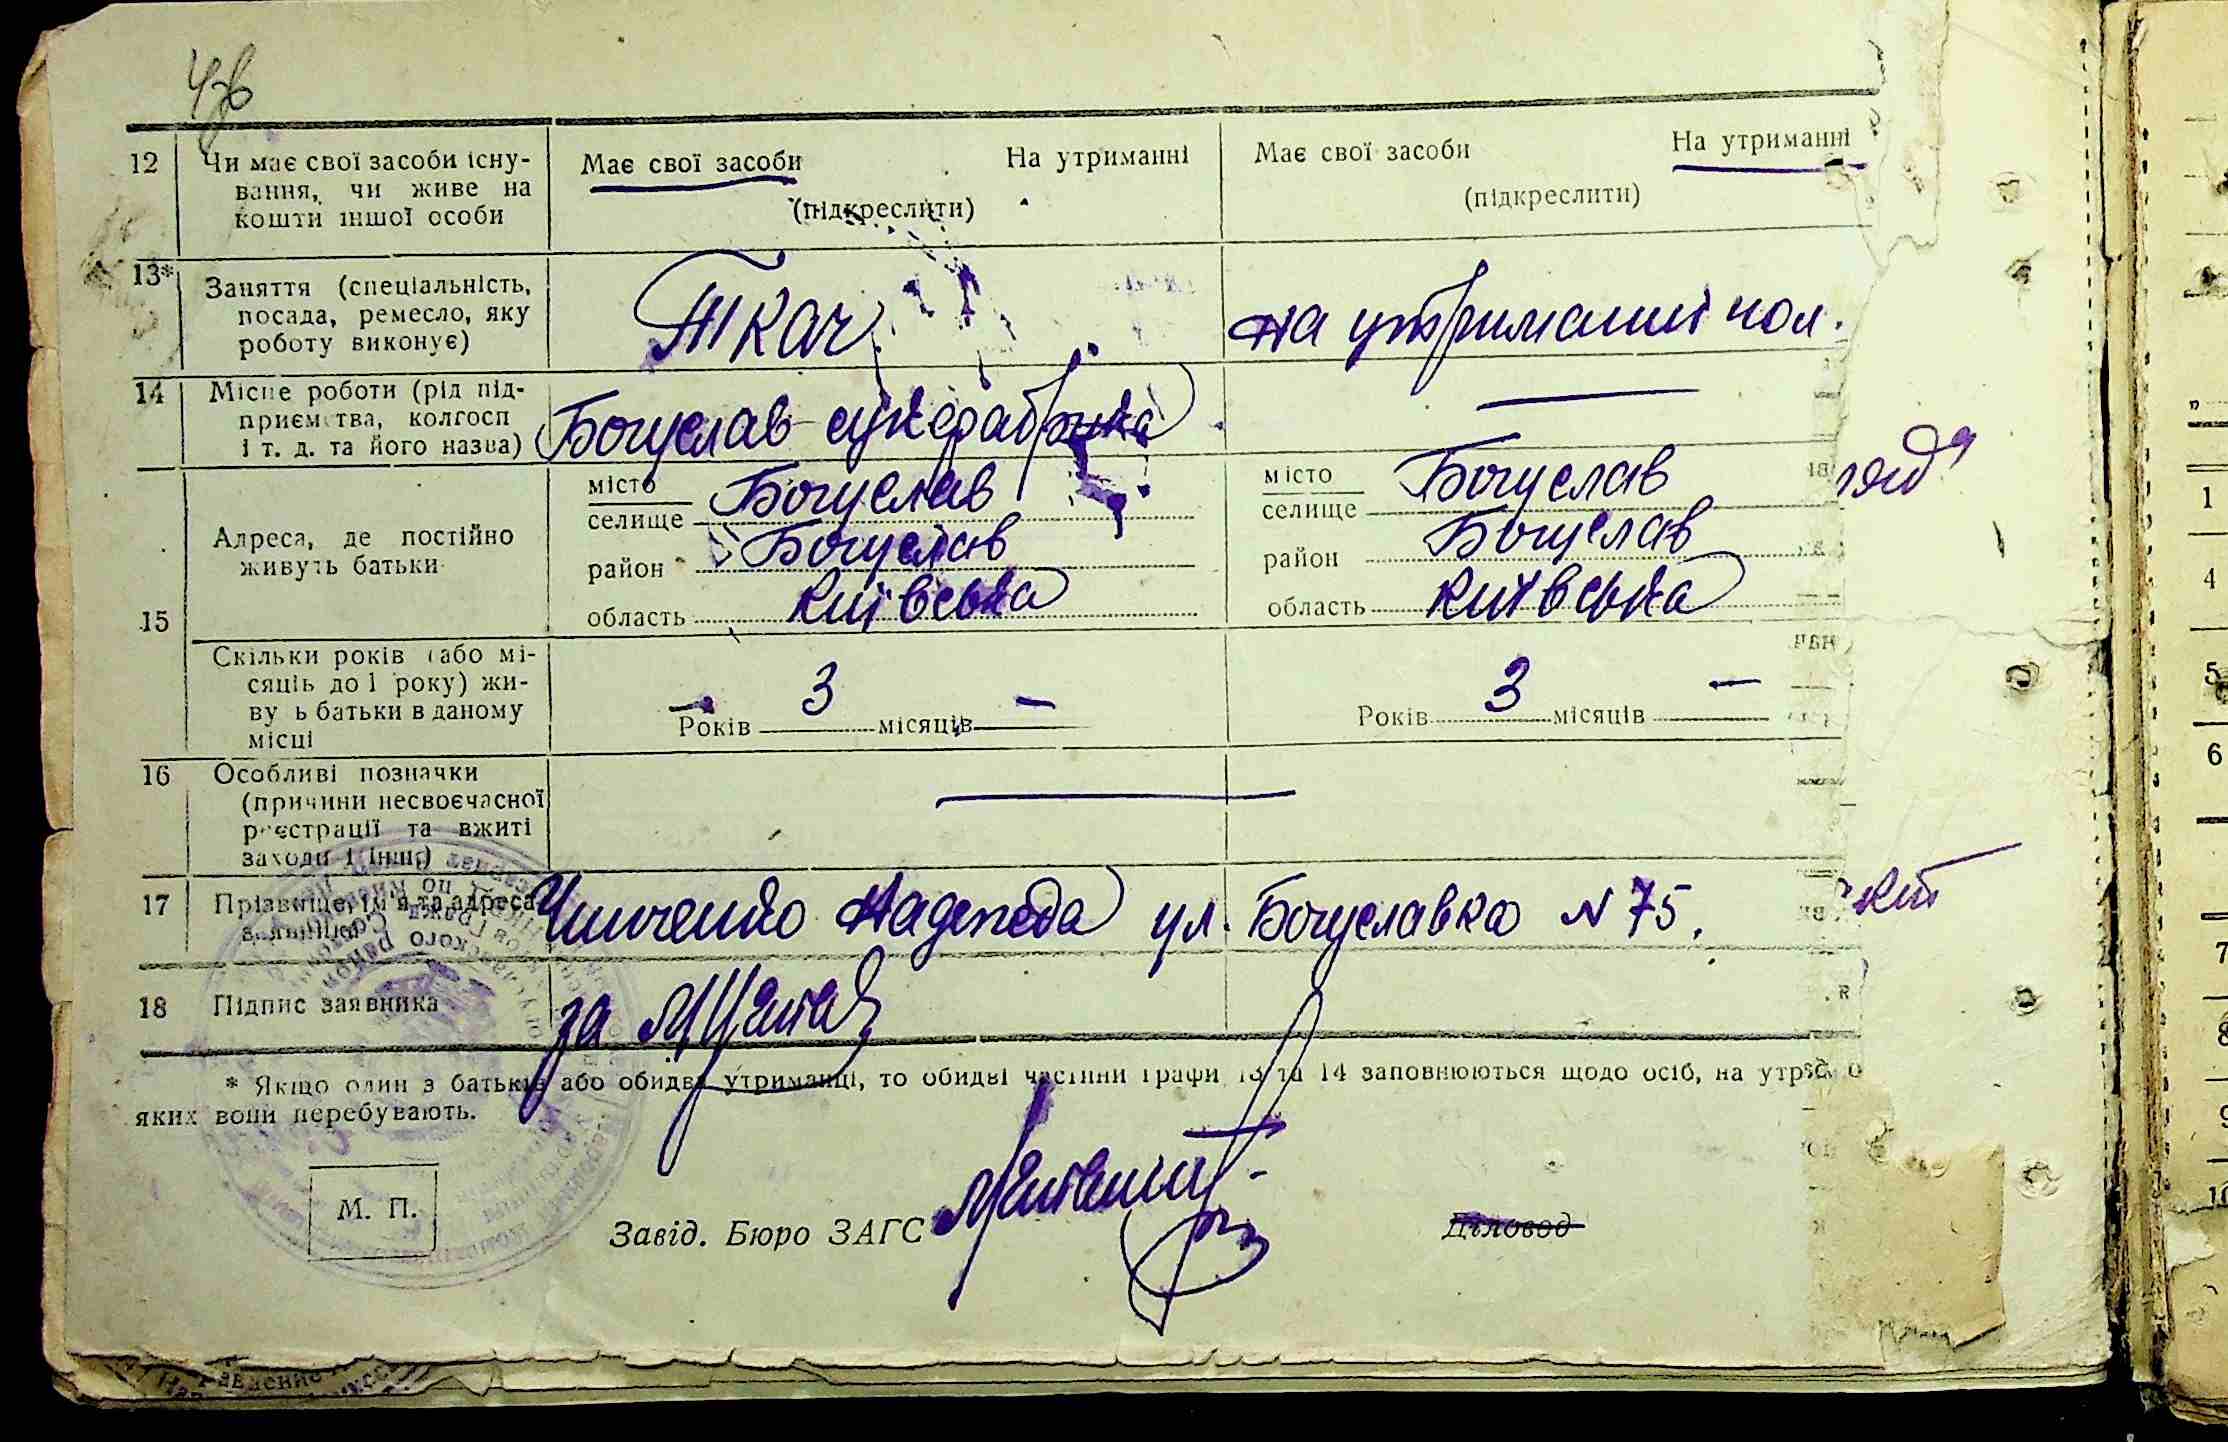 12 Чи має свої засоби існу-
вання, чи живе на
кошти іншої особи
Має свої засоби На утриманні
(підкреслити)
Має свої засоби На утриманні
(підкреслити)
13* Заняття (спеціальність,
посада, ремесло, яку
роботу виконує)
Ткач
на утриманні чол.
14 Місце роботи (рід під-
приємства, колгосп
і т. д. та його назва)
Богуслав сукфабрика
15 Адреса, де постійно
живуть батьки
місто Богуслав
селище
район Богуслав
область Київська
місто Богуслав
селище
район Богуслав
область Київська
Скільки років (або мі-
сяців до 1 року) жи-
вуть батьки в даному
місці
Років 3 місяців —
Років 3 місяців —
16 Особливі позначки
(причини несвоєчасної
реєстрації та вжиті
заходи і інш.)
17 Прізвище, ім'я та адреса
заявника
Надежда ул. Богуславка N 75.
18 Підпис заявника
за
* Якщо один з батьків або обидва утриманці, то обидві частини графи 13 та 14 заповнюються щодо осіб, на
яких вони перебувають.
М. П.
Завід. Бюро ЗАГС
Діловод
1
4
5
6
7
8
9
10